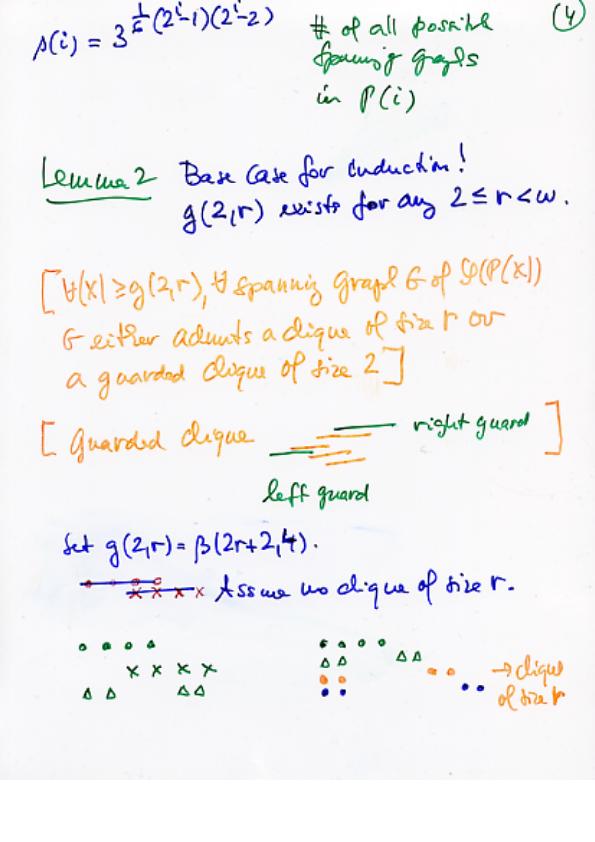 (4)
ρ(i) = 3^{1/6 (2^i-1)(2^i-2)} # of all possible
spanning graphs
in P(i)
Lemma 2 Base Case for Induction!
g(2,r) exists for any 2 ≤ r < ω.
[∀|X| ≥ g(2,r), ∀ spanning graph G of (P(X))
G either admits a clique of size r or
a guarded clique of size 2]
[Guarded clique right guard]
left guard
Set g(2,r) = β(2r+2,4).
Assume no clique of size r.
→ clique
of size r